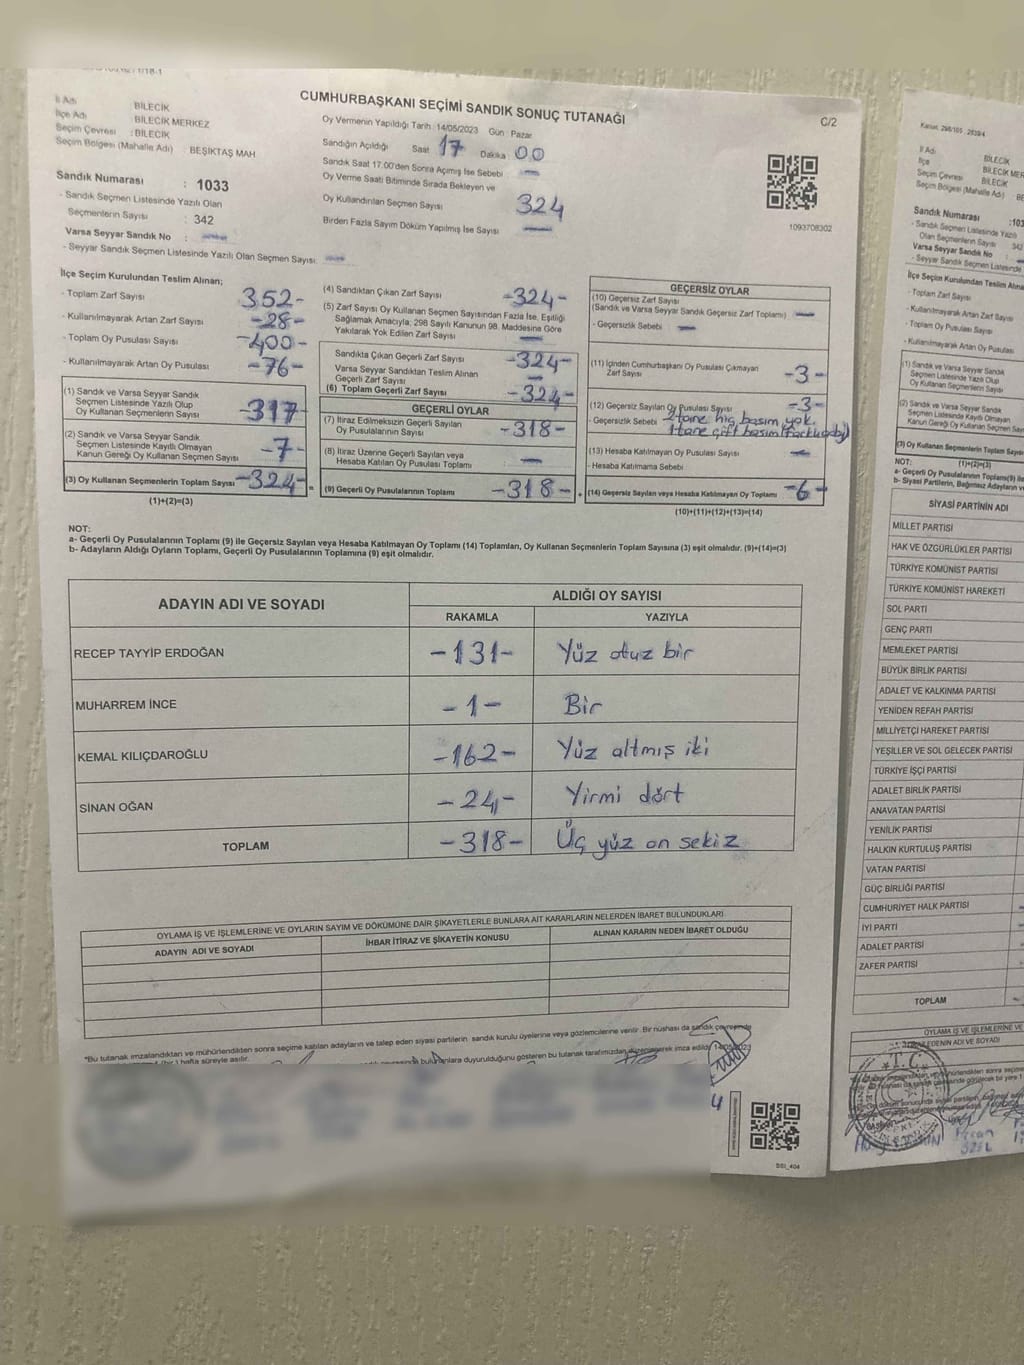 CUMHURBAŞKANI SEÇİMİ SANDIK SONUÇ TUTANAĞI
C/2
İl Adı BİLECİK
İlçe Adı BİLECİK MERKEZ
Seçim Çevresi : BİLECİK
Seçim Bölgesi (Mahalle Adı) : BEŞİKTAŞ MAH
Sandık Numarası : 1033
- Sandık Seçmen Listesinde Yazılı Olan
Seçmenlerin Sayısı : 342
Varsa Seyyar Sandık No :
- Seyyar Sandık Seçmen Listesinde Yazılı Olan Seçmen Sayısı:
Oy Vermenin Yapıldığı Tarih :14/05/2023 Gün : Pazar
Sandığın Açıldığı Saat 17 Dakika : 00
Sandık Saat 17.00'den Sonra Açımış İse Sebebi
Oy Verme Saati Bitiminde Sırada Bekleyen ve
Oy Kullandırılan Seçmen Sayısı 324
Birden Fazla Sayım Döküm Yapılmış İse Sayısı
1093708302
İlçe Seçim Kurulundan Teslim Alınan;
- Toplam Zarf Sayısı 352-
- Kullanılmayarak Artan Zarf Sayısı -28-
- Toplam Oy Pusulası Sayısı -400-
- Kullanılmayarak Artan Oy Pusulası -76-
(1) Sandık ve Varsa Seyyar Sandık
Seçmen Listesinde Yazılı Olup
Oy Kullanan Seçmenlerin Sayısı -317-
(2) Sandık ve Varsa Seyyar Sandık
Seçmen Listesinde Kayıtlı Olmayan
Kanun Gereği Oy Kullanan Seçmen Sayısı -7-
(3) Oy Kullanan Seçmenlerin Toplam Sayısı -324-
(1)+(2)=(3)
(4) Sandıktan Çıkan Zarf Sayısı -324-
(5) Zarf Sayısı Oy Kullanan Seçmen Sayısından Fazla İse, Eşitliği
Sağlamak Amacıyla; 298 Sayılı Kanunun 98. Maddesine Göre
Yakılarak Yok Edilen Zarf Sayısı
Sandıkta Çıkan Geçerli Zarf Sayısı -324-
Varsa Seyyar Sandıktan Teslim Alınan
Geçerli Zarf Sayısı
(6) Toplam Geçerli Zarf Sayısı -324-
GEÇERLİ OYLAR
(7) İtiraz Edilmeksizin Geçerli Sayılan
Oy Pusulalarının Sayısı -318-
(8) İtiraz Üzerine Geçerli Sayılan veya
Hesaba Katılan Oy Pusulası Toplamı
(9) Geçerli Oy Pusulalarının Toplamı -318-
GEÇERSİZ OYLAR
(10) Geçersiz Zarf Sayısı
(Sandık ve Varsa Seyyar Sandık Geçersiz Zarf Toplamı)
- Geçersizlik Sebebi
(11) İçinden Cumhurbaşkanı Oy Pusulası Çıkmayan
Zarf Sayısı -3-
(12) Geçersiz Sayılan Oy Pusulası Sayısı -3-
- Geçersizlik Sebebi 2 tane hiç basım yok.
1 tane çift basım
(13) Hesaba Katılmayan Oy Pusulası Sayısı
- Hesaba Katılmama Sebebi
(14) Geçersiz Sayılan veya Hesaba Katılmayan Oy Toplamı -6-
(10)+(11)+(12)+(13)=(14)
NOT:
a- Geçerli Oy Pusulalarının Toplamı (9) ile Geçersiz Sayılan veya Hesaba Katılmayan Oy Toplamı (14) Toplamları, Oy Kullanan Seçmenlerin Toplam Sayısına (3) eşit olmalıdır. (9)+(14)=(3)
b- Adayların Aldığı Oyların Toplamı, Geçerli Oy Pusulalarının Toplamına (9) eşit olmalıdır.
ADAYIN ADI VE SOYADI ALDIĞI OY SAYISI
RAKAMLA YAZIYLA
RECEP TAYYİP ERDOĞAN -131- Yüz otuz bir
MUHARREM İNCE -1- Bir
KEMAL KILIÇDAROĞLU -162- Yüz altmış iki
SİNAN OĞAN -24- Yirmi dört
TOPLAM -318- Üç yüz on sekiz
OYLAMA İŞ VE İŞLEMLERİNE VE OYLARIN SAYIM VE DÖKÜMÜNE DAİR ŞİKAYETLERLE BUNLARA AİT KARARLARIN NELERDEN İBARET BULUNDUKLARI
ADAYIN ADI VE SOYADI İHBAR İTİRAZ VE ŞİKAYETİN KONUSU ALINAN KARARIN NEDEN İBARET OLDUĞU
*Bu tutanak imzalandıktan ve mühürlendikten sonra seçime katılan adayların ve talep eden siyasi partilerin sandık kurulu üyelerine veya gözlemcilerine verilir. Bir nüshası da sandık çevresinde
hafta süreyle asılır.
bulunanlara duyurulduğunu gösteren bu tutanak tarafımızdan düzenlenerek imza edildi.
BSI_404
İl Adı BİLECİK
İlçe
Seçim Çevresi BİLECİK
Sandık Numarası
- Sandık Seçmen Listesinde Yazılı
Olan Seçmenlerin Sayısı 342
Varsa Seyyar Sandık No
- Seyyar Sandık Seçmen Listesinde
İlçe Seçim Kurulundan Teslim
- Toplam Zarf Sayısı
- Kullanılmayarak Artan Zarf Sayısı
- Toplam Oy Pusulası Sayısı
- Kullanılmayarak Artan Oy Pusulası
(1) Sandık ve Varsa Seyyar Sandık
Seçmen Listesinde Yazılı Olup
Oy Kullanan Seçmenlerin Sayısı
(2) Sandık ve Varsa Seyyar Sandık
Seçmen Listesinde Kayıtlı Olmayan
(3) Oy Kullanan Seçmenlerin Toplam
(1)+(2)=(3)
NOT:
a- Geçerli Oy Pusulalarının Toplamı (9)
b- Siyasi Partilerin, Bağımsız Adayların
SİYASİ PARTİNİN ADI
MİLLET PARTİSİ
HAK VE ÖZGÜRLÜKLER PARTİSİ
TÜRKİYE KOMÜNİST PARTİSİ
TÜRKİYE KOMÜNİST HAREKETİ
SOL PARTİ
GENÇ PARTİ
MEMLEKET PARTİSİ
BÜYÜK BİRLİK PARTİSİ
ADALET VE KALKINMA PARTİSİ
YENİDEN REFAH PARTİSİ
MİLLİYETÇİ HAREKET PARTİSİ
YEŞİLLER VE SOL GELECEK PARTİSİ
TÜRKİYE İŞÇİ PARTİSİ
ADALET BİRLİK PARTİSİ
ANAVATAN PARTİSİ
YENİLİK PARTİSİ
HALKIN KURTULUŞ PARTİSİ
VATAN PARTİSİ
GÜÇ BİRLİĞİ PARTİSİ
CUMHURİYET HALK PARTİSİ
İYİ PARTİ
ADALET PARTİSİ
ZAFER PARTİSİ
TOPLAM
OYLAMA İŞ VE İŞLEMLERİNE VE
T.C.